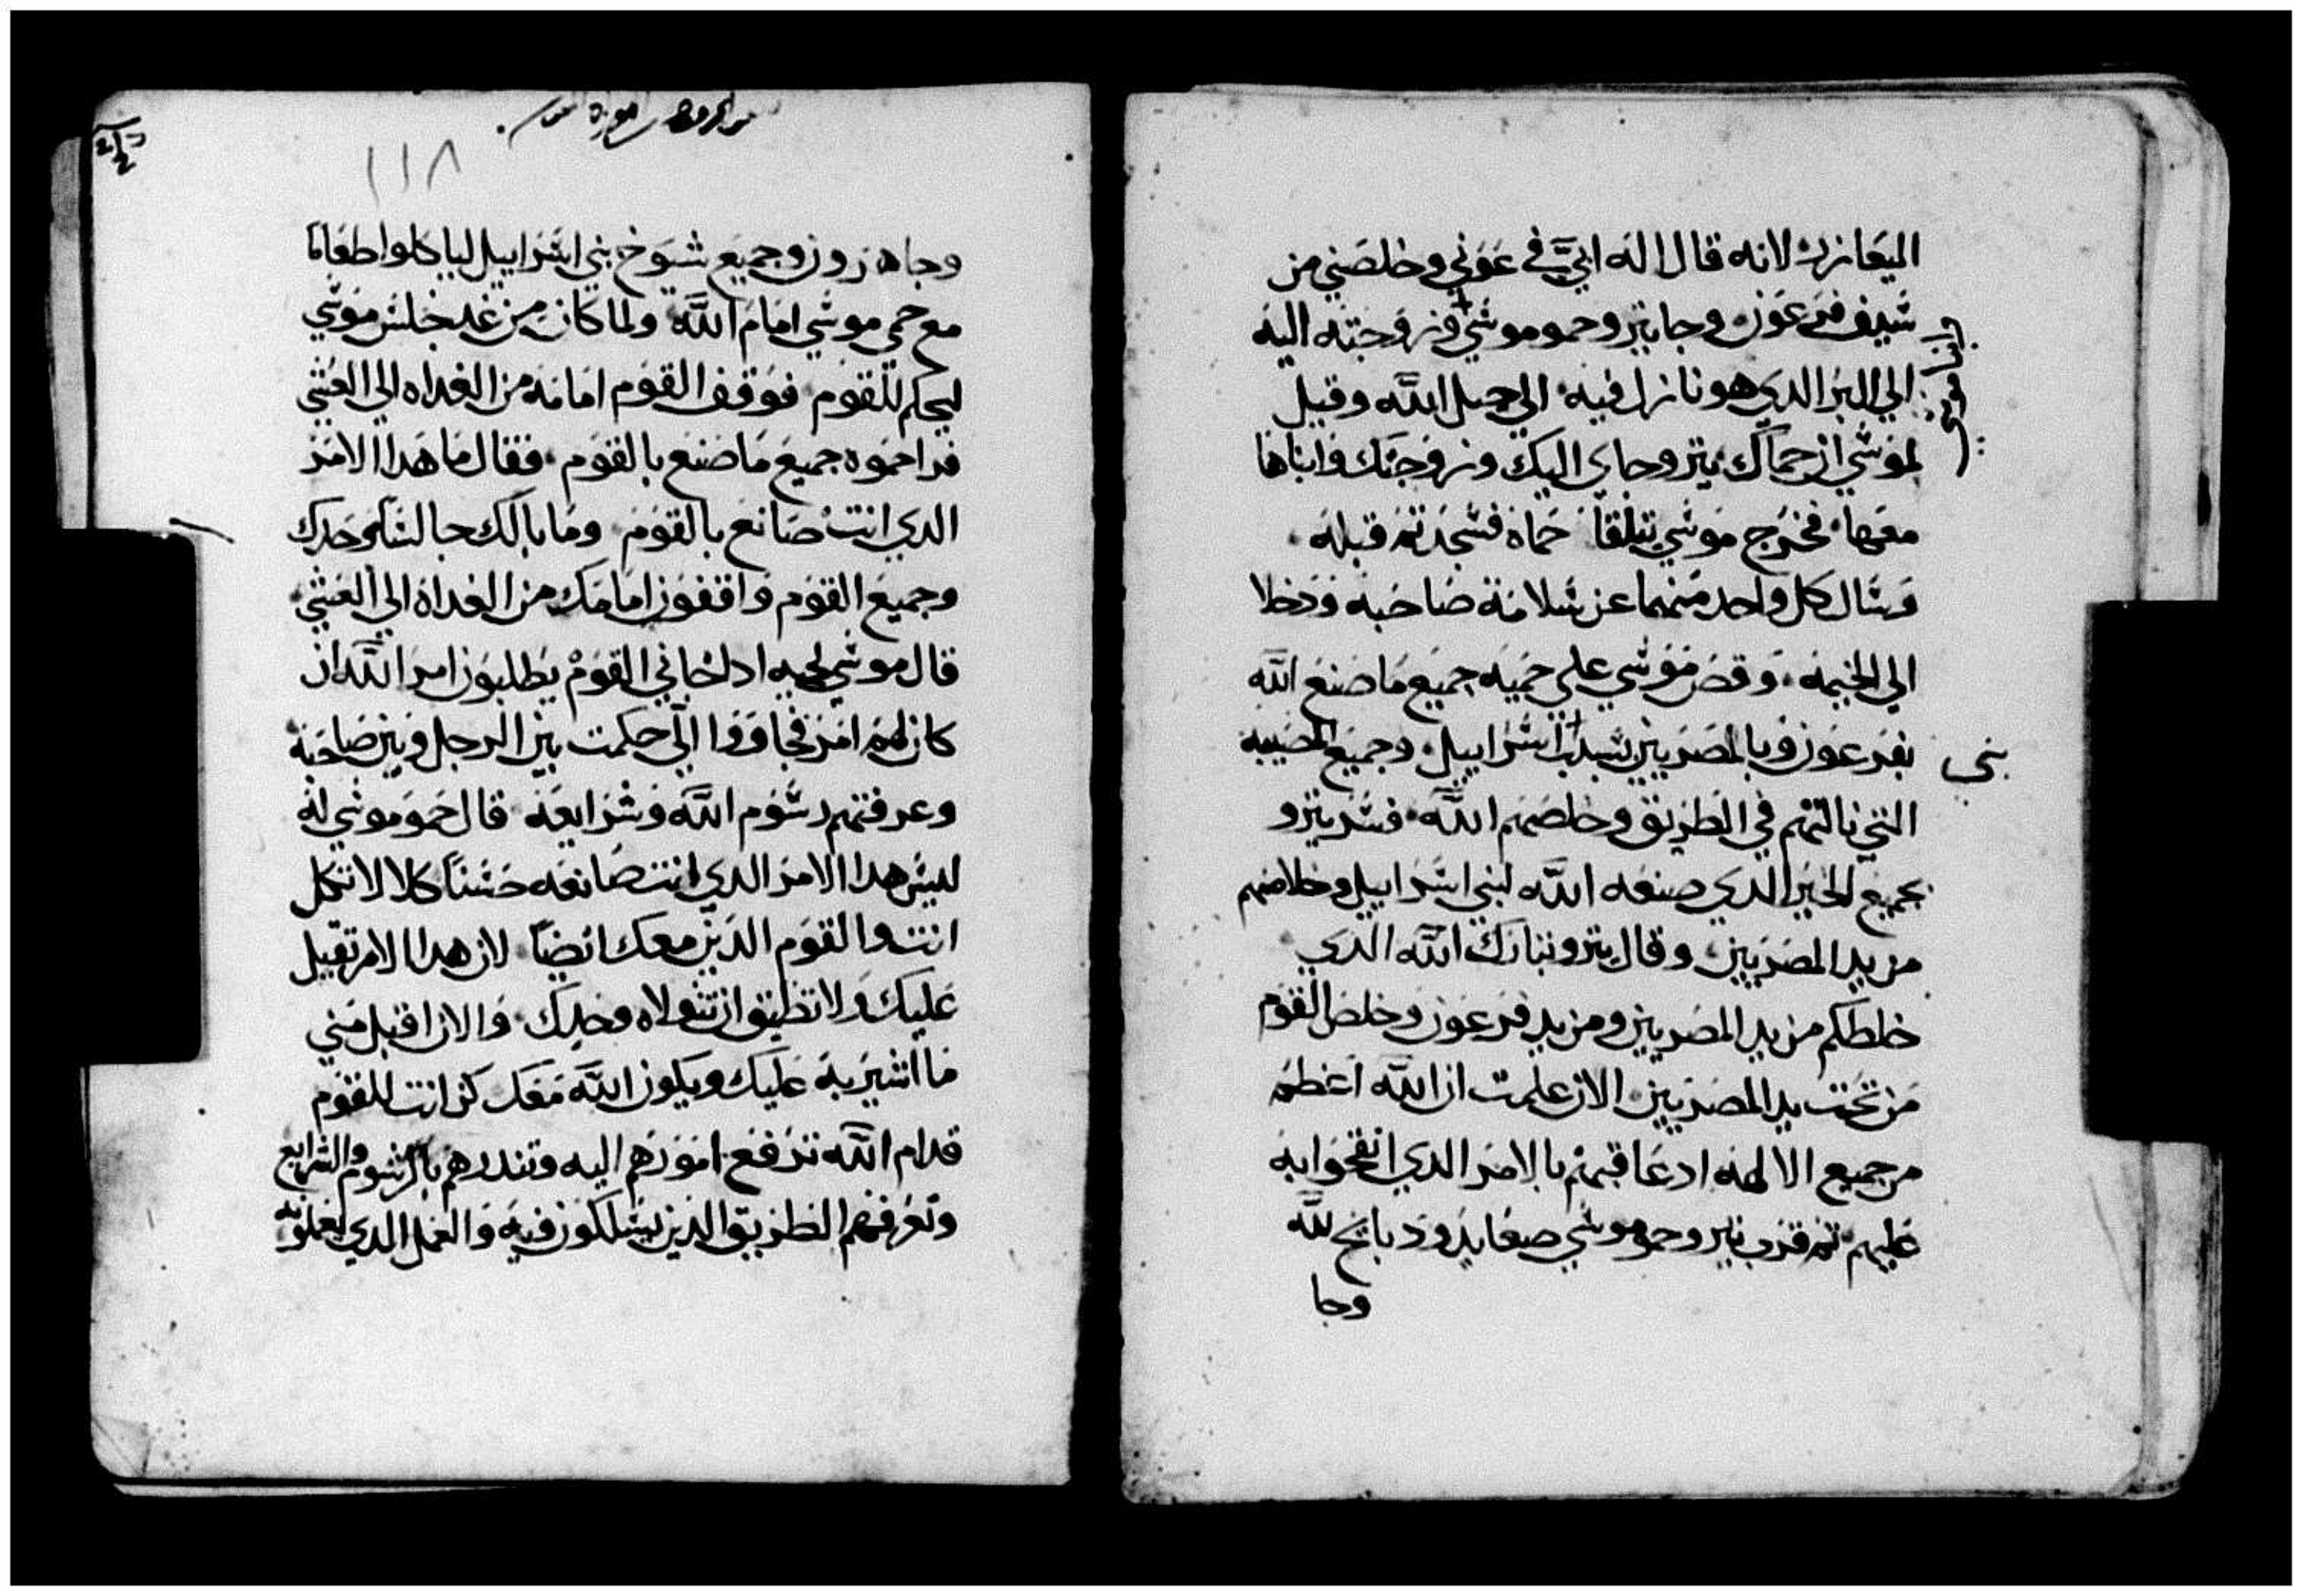 اليعازر لانه قال اله ابي في عوني وخلصني من
شيف فرعون وجا يترو حمو موشي وزوجته اليه
وابنا موسى
الي البر الدي هو نازل فيه الي جبل الله وقيل
لموشي ان حماك يترو جاي اليك وزوجتك وابناها
معها فخرج موشي تيلقا حماه فشجد تم قبله
وشال كل واحد منهما عن شلامة صاحبه ودخلا
الي الخيمه وقص موشي علي حميه جميع ما صنع الله
بفرعون وبالمصريين بشبب اشراييل وجميع المصيبه
بني
التي نالتهم في الطريق وخلصهم الله فشر يترو
بجميع الخير الدي صنعه الله لبني اشراييل وخلاصهم
من يد المصريين وقال يترو تبارك الله الدي
خلطكم من يد المصريين ومن يد فرعون وخلص القوم
من تحت يد المصريين الان علمت ان الله اعظم
من جميع الالهه ادعاقبهم بالامر الدي اتقحوا به
عليهم تم قرب يترو حمو موشي صعايد ودبايح لله
وجا
١١٨
وجا هرون وجميع شيوخ بني اشراييل لياكلوا طعاما
مع حمي موشي امام الله ولما كان من غد جلش موشي
ليحكم للقوم فوقف القوم امامه من الغداه الي العشي
فراحموه جميع ما صنع بالقوم فقال ما هدا الامر
الدي انت صانع بالقوم وما بالك جالش وحدك
وجميع القوم واقفون امامك من الغداه الي العشي
قال موشي لحميه ادا جاني القوم يطلبون امر الله ان
كان لهم امر فجاووا الي حكمت بين الرجل وبين صاحبه
وعرفتهم رشوم الله وشرايعه قال حمو موشي له
ليش هدا الامر الدي انت صانعه حشنا كلا لا تكل
انت والقوم الدين معك ايضا لان هدا الامر تقيل
عليك ولا تطيق ان تتولاه وحدك والان اقبل مني
ما اشير به عليك ويكون الله معك كن انت للقوم
قدام الله ترفع امورهم اليه وتندرهم بالرشوم والشرايع
وتعرفهم الطريق الدين يشلكون فيه والعمل الدي يعملونه